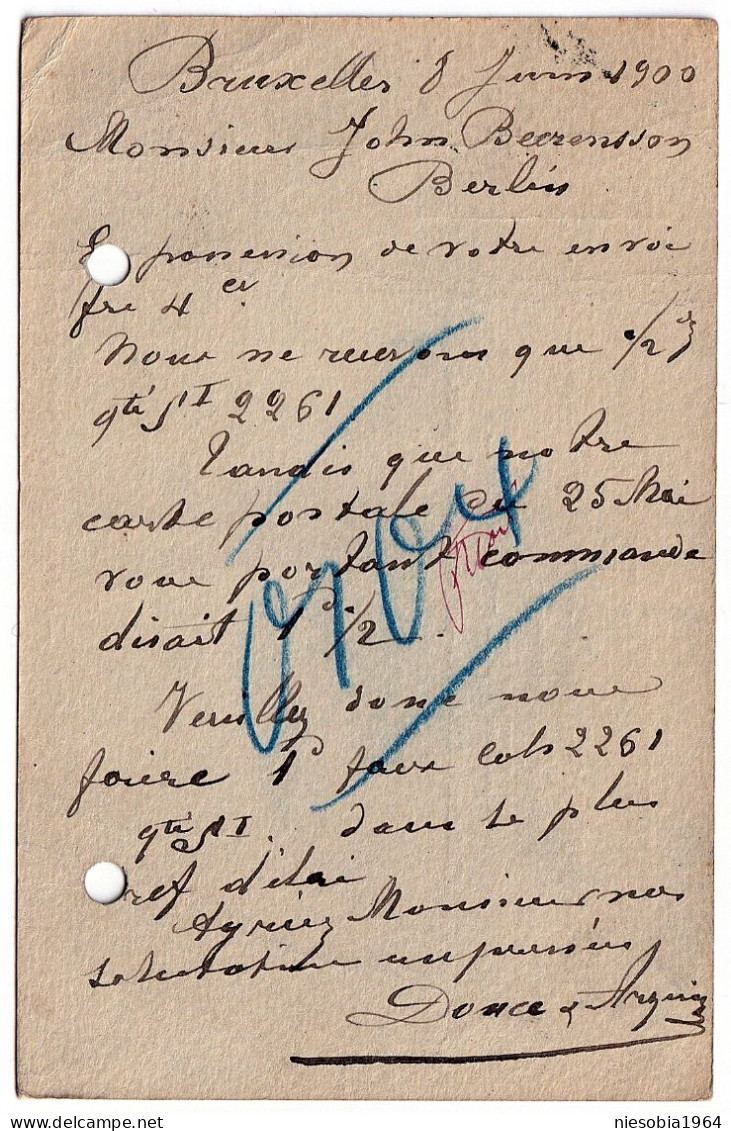 Bruxelles 8 Juin 1900
Monsieur John Beerensson
Berlin
possession de votre envoi
fre 4 ct
Nous ne recevons que 1/2
qté 2261
Tandis que notre
carte postale du 25 Mai
vous portant commande
disait 1 d 1/2.
Veuillez donc nous
faire 1 d faux cols 2261
qté dans le plus
ref délai
Agréez Monsieur nos
salutations empressées
Donce &
niesobia1964